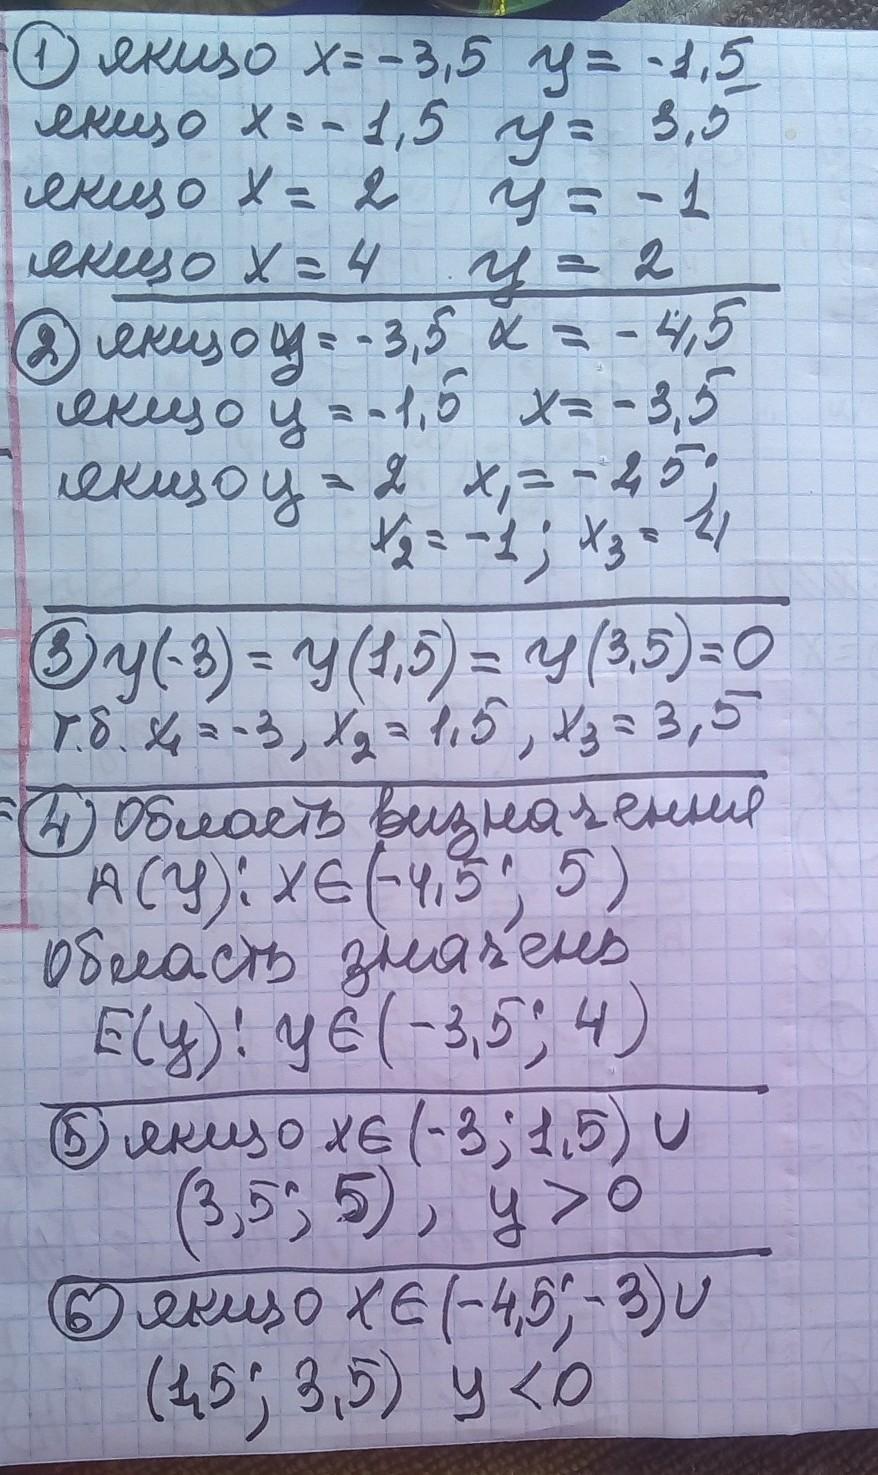 ① якщо x = -3,5 y = -1,5
якщо x = -1,5 y = 3,5
якщо x = 2 y = -1
якщо x = 4 y = 2
② якщо y = -3,5 x = -4,5
якщо y = -1,5 x = -3,5
якщо y = 2 x₁ = -2,5;
x₂ = -1; x₃ = 4
③ y(-3) = y(1,5) = y(3,5) = 0
т.б. x₁ = -3, x₂ = 1,5, x₃ = 3,5
④ Область визначення
Д(y): x∈(-4,5; 5)
Область значень
E(y): y∈(-3,5; 4)
⑤ якщо x∈(-3; 1,5) ∪
(3,5; 5), y > 0
⑥ якщо x∈(-4,5; -3) ∪
(1,5; 3,5) y < 0